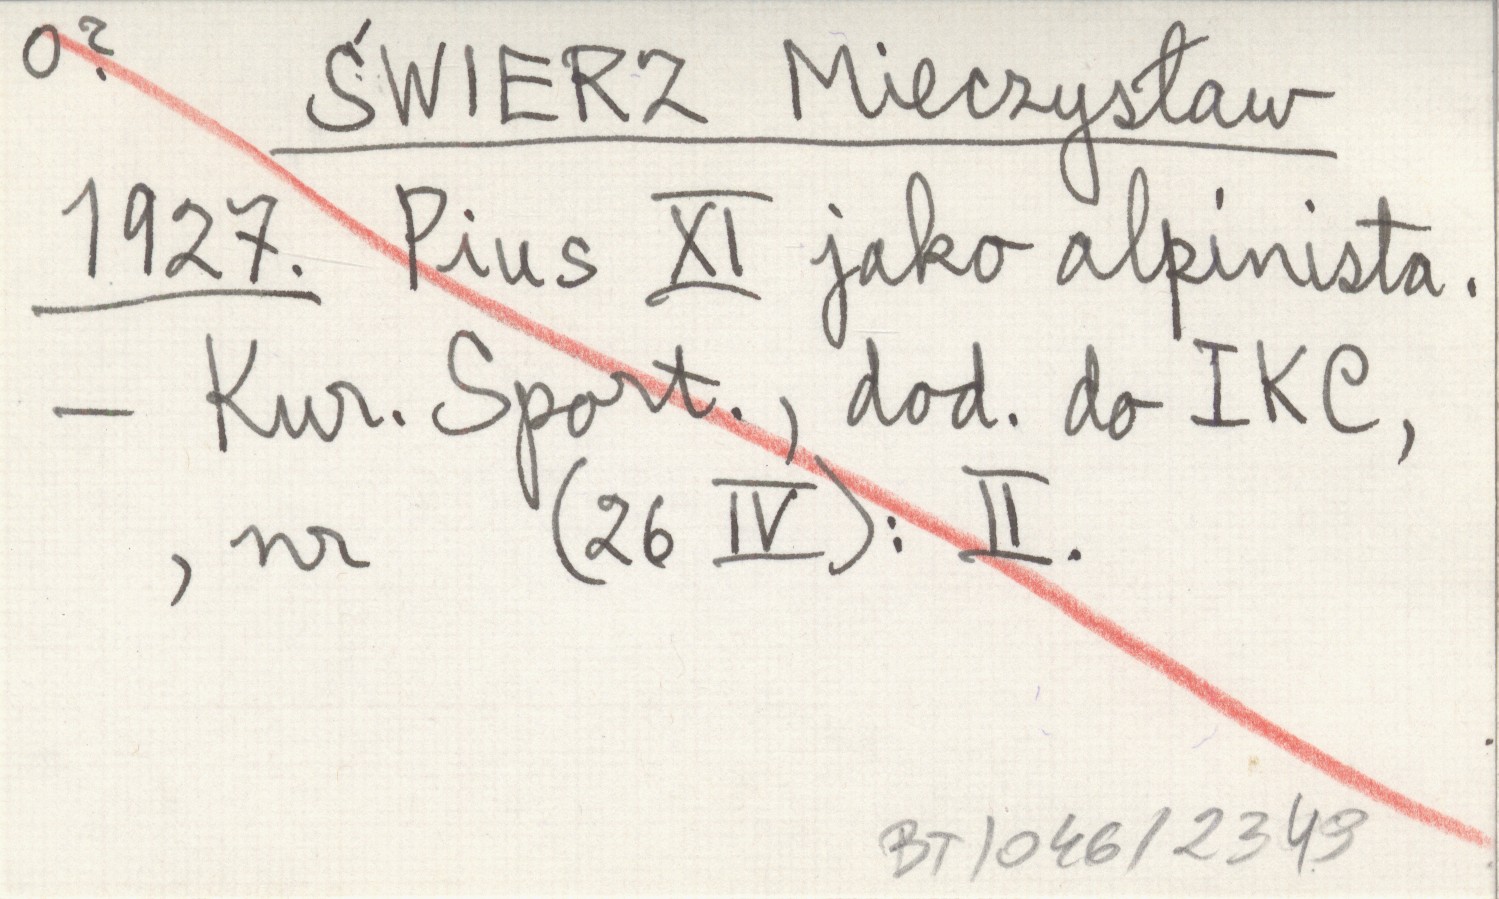 O? ŚWIERZ Mieczysław
1927. Pius XI jako alpinista.
– Kur. Sport., dod. do IKC,
, nr (26 IV): II.
BT/046/2349